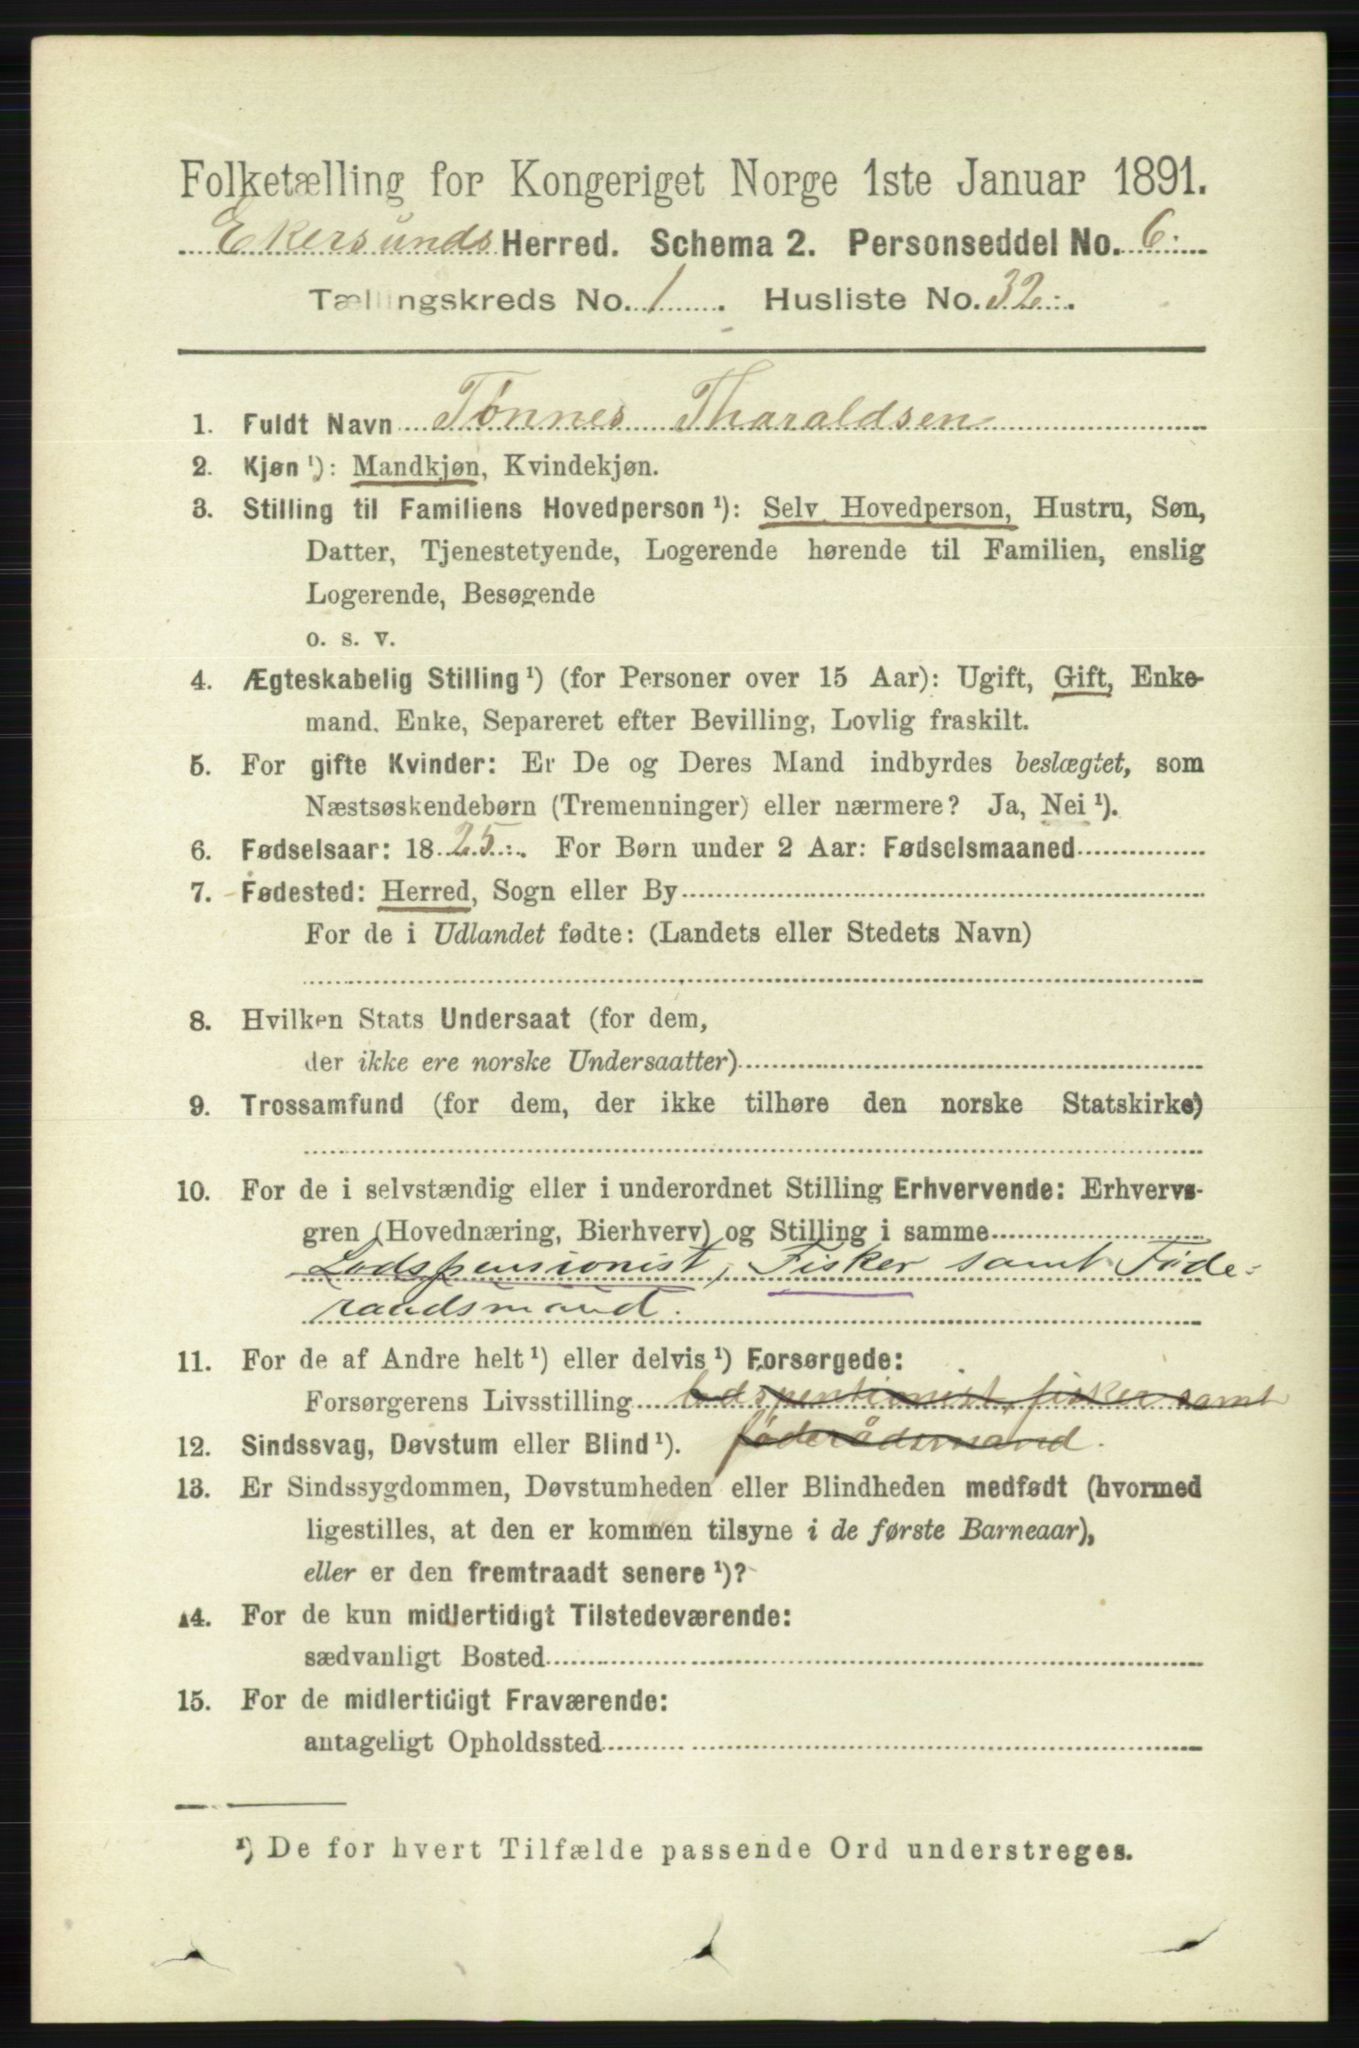 Folketælling for Kongeriget Norge 1ste Januar 1891.
Ekersunds Herred. Schema 2. Personseddel No. 6.
Tællingskreds No. 1. Husliste No. 32.
1. Fuldt Navn Tønnes Tharaldsen
2. Kjøn ¹): Mandkjøn, Kvindekjøn.
3. Stilling til Familiens Hovedperson ¹): Selv Hovedperson, Hustru, Søn,
Datter, Tjenestetyende, Logerende hørende til Familien, enslig
Logerende, Besøgende
o. s. v.
4. Ægteskabelig Stilling ¹) (for Personer over 15 Aar): Ugift, Gift, Enke-
mand, Enke, Separeret efter Bevilling, Lovlig fraskilt.
5. For gifte Kvinder: Er De og Deres Mand indbyrdes beslægtet, som
Næstsøskendebørn (Tremenninger) eller nærmere? Ja, Nei ¹).
6. Fødselsaar: 1825. For Børn under 2 Aar: Fødselsmaaned
7. Fødested: Herred, Sogn eller By
For de i Udlandet fødte: (Landets eller Stedets Navn)
8. Hvilken Stats Undersaat (for dem,
der ikke ere norske Undersaatter)
9. Trossamfund (for dem, der ikke tilhøre den norske Statskirke)
10. For de i selvstændig eller i underordnet Stilling Erhvervende: Erhvervs-
gren (Hovednæring, Bierhverv) og Stilling i samme
Lodspensionist, Fisker samt Føde-
raadsmand.
11. For de af Andre helt ¹) eller delvis ¹) Forsørgede:
Forsørgerens Livsstilling lodspentionist, fisker samt
12. Sindssvag, Døvstum eller Blind ¹). føderådsmand.
13. Er Sindssygdommen, Døvstumheden eller Blindheden medfødt (hvormed
ligestilles, at den er kommen tilsyne i de første Barneaar),
eller er den fremtraadt senere ¹)?
14. For de kun midlertidigt Tilstedeværende:
sædvanligt Bosted
15. For de midlertidigt Fraværende:
antageligt Opholdssted
¹) De for hvert Tilfælde passende Ord understreges.